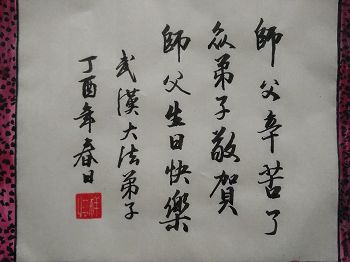 師父辛苦了
众弟子敬賀
師父生日快樂
武漢大法弟子
丁酉年春日